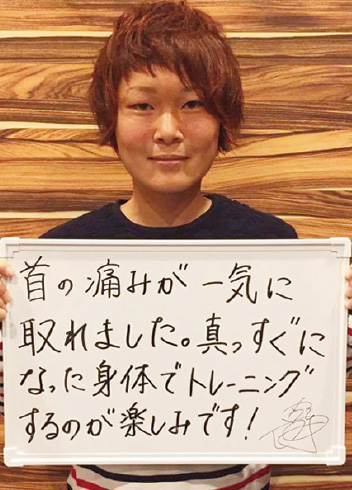 首の痛みが一気に
取れました。真っすぐに
なった身体でトレーニング
するのが楽しみです!